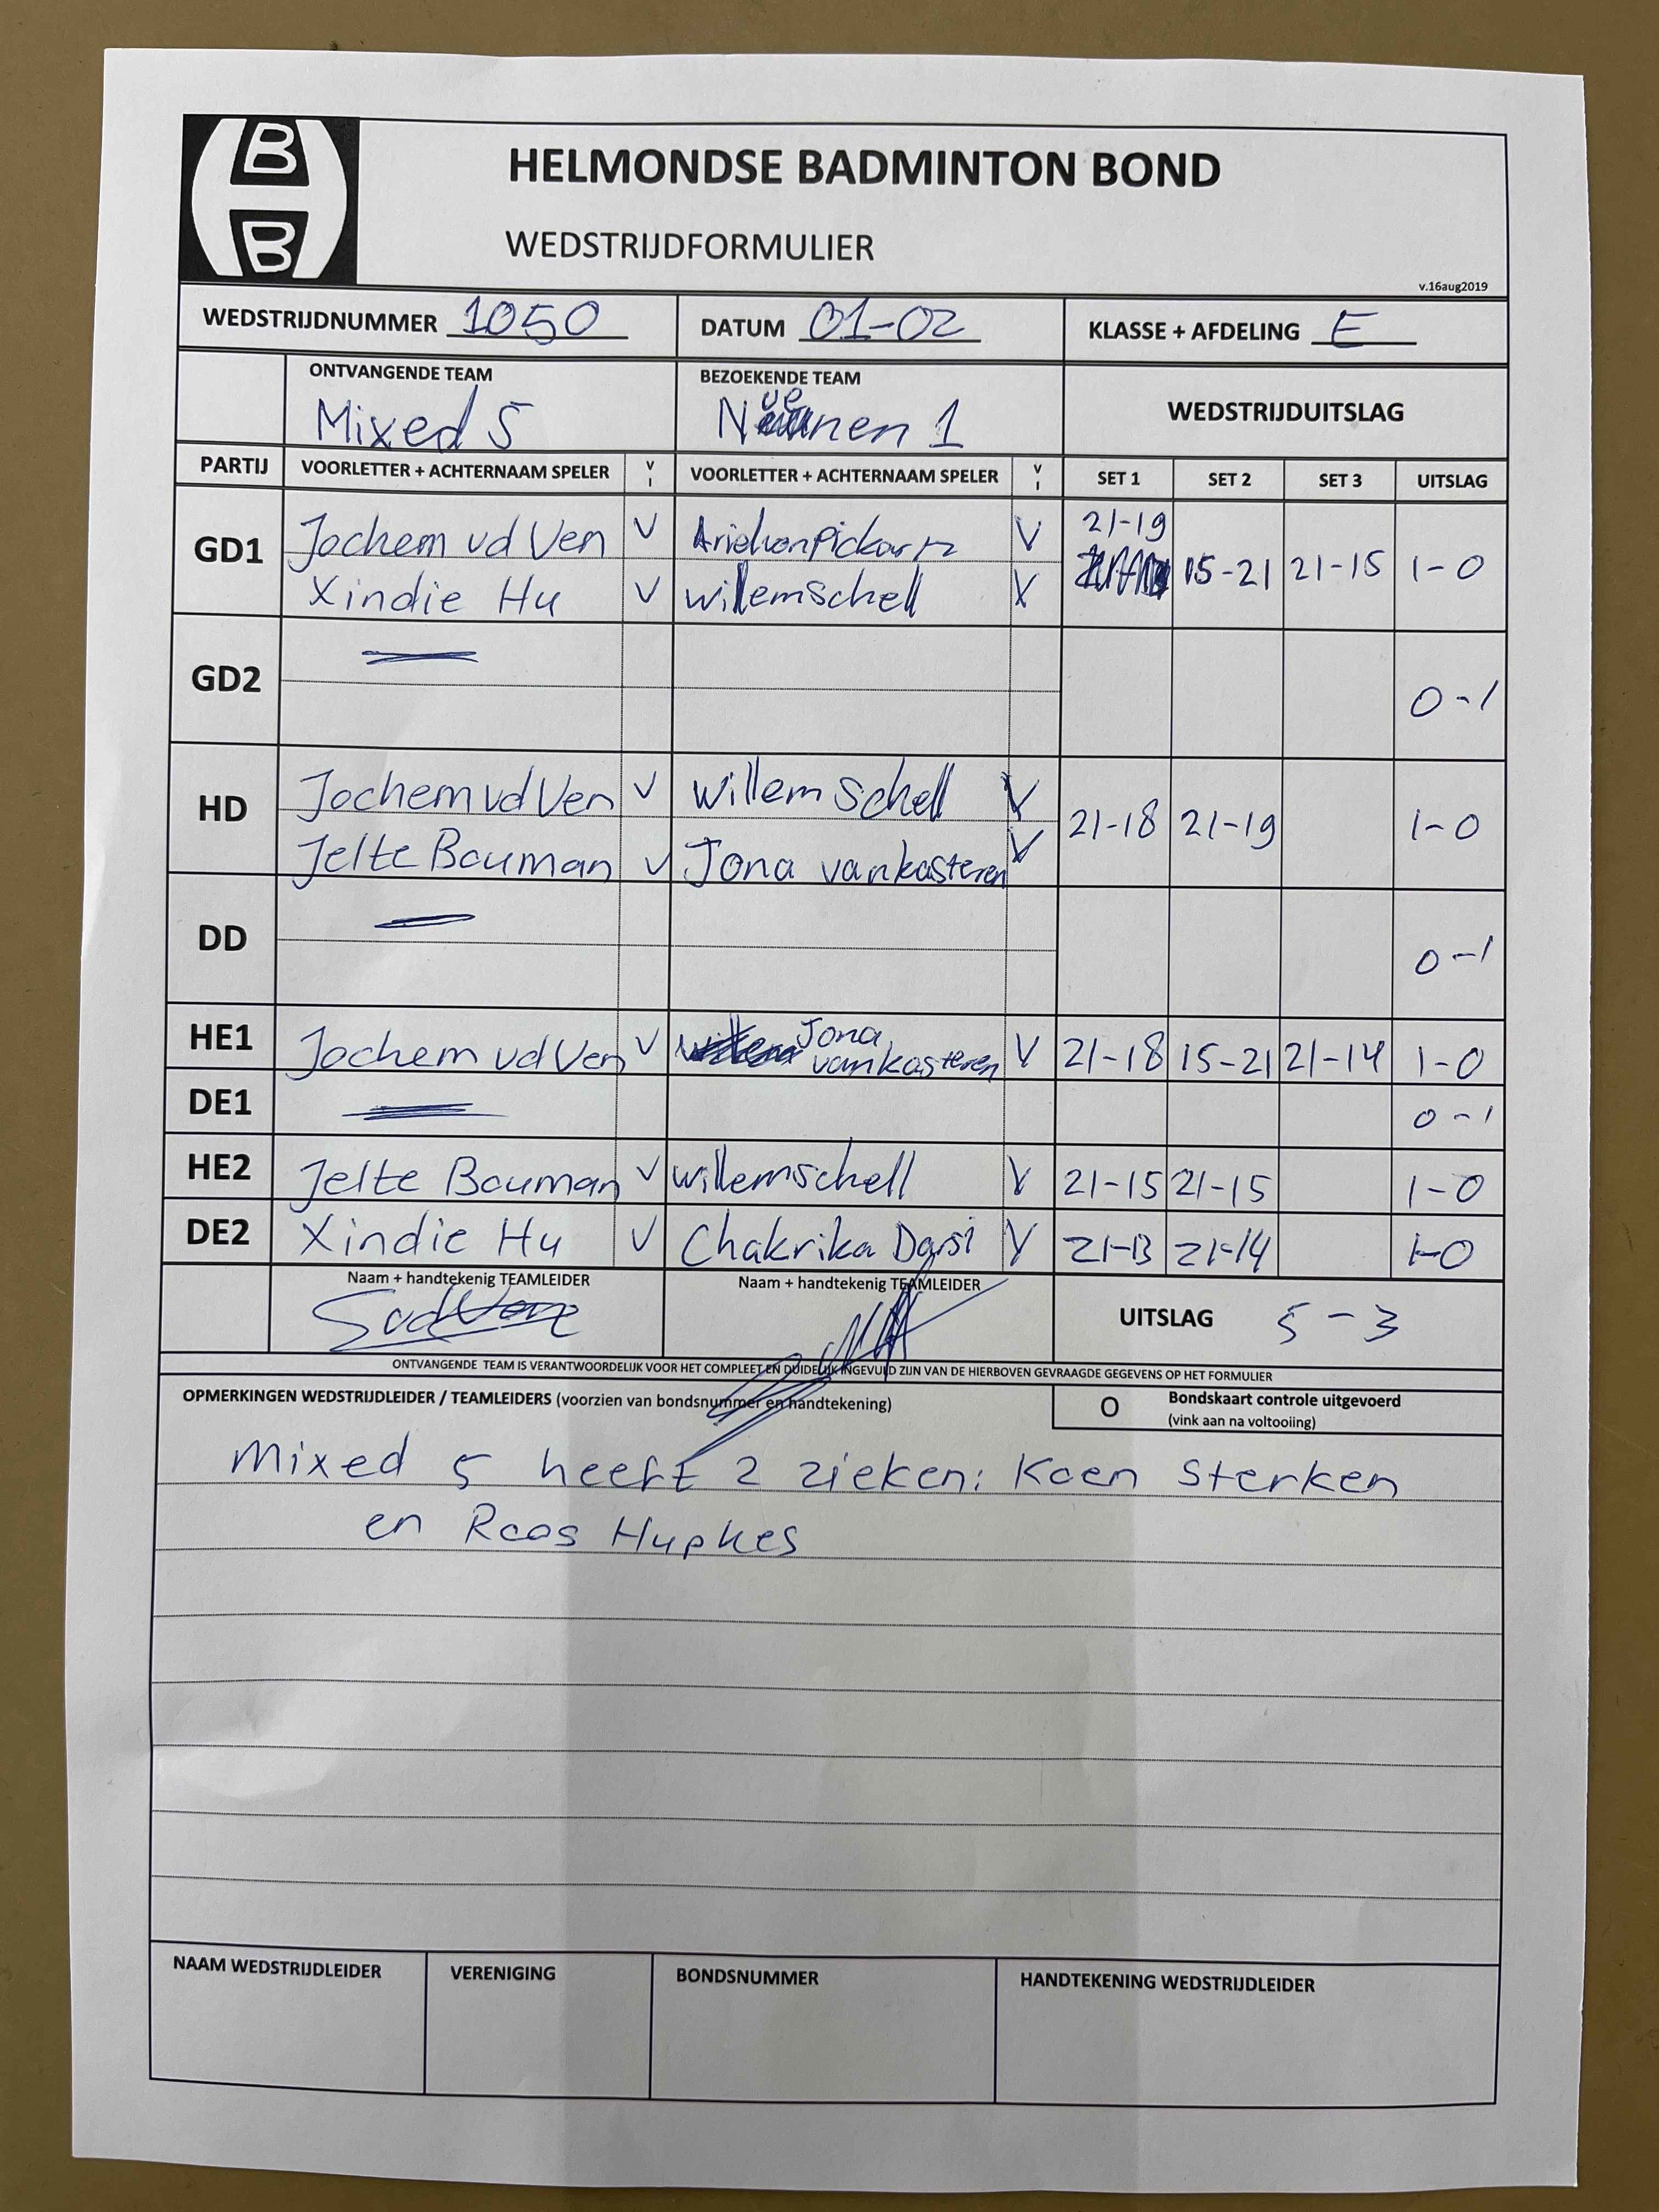 B
B
HELMONDSE BADMINTON BOND
WEDSTRIJDFORMULIER
v.16aug2019
WEDSTRIJDNUMMER 1050 DATUM 01-02 KLASSE + AFDELING E
ONTVANGENDE TEAM BEZOEKENDE TEAM WEDSTRIJDUITSLAG
Mixed 5 Nuenen 1
PARTIJ VOORLETTER + ACHTERNAAM SPELER V I VOORLETTER + ACHTERNAAM SPELER V I SET 1 SET 2 SET 3 UITSLAG
GD1 Jochem vd Ven V V 21-19 15-21 21-15 1-0
Xindie Hu V willemschell V
GD2 0-1
HD Jochem vd Ven V Willem Schell V 21-18 21-19 1-0
Jelte Bouman V Jona vankasteren V
DD 0-1
HE1 Jochem vd Ven V Jona vankasteren V 21-18 15-21 21-14 1-0
DE1 0-1
HE2 Jelte Bouman V willemschell V 21-15 21-15 1-0
DE2 Xindie Hu V Chakrika Darsi V 21-13 21-14 1-0
Naam + handtekenig TEAMLEIDER Naam + handtekenig TEAMLEIDER UITSLAG 5-3
ONTVANGENDE TEAM IS VERANTWOORDELIJK VOOR HET COMPLEET EN DUIDELIJK INGEVULD ZIJN VAN DE HIERBOVEN GEVRAAGDE GEGEVENS OP HET FORMULIER
OPMERKINGEN WEDSTRIJDLEIDER / TEAMLEIDERS (voorzien van bondsnummer en handtekening) O Bondskaart controle uitgevoerd
(vink aan na voltooiing)
Mixed 5 heeft 2 zieken: Koen Sterken
en Roos Hupkes
NAAM WEDSTRIJDLEIDER VERENIGING BONDSNUMMER HANDTEKENING WEDSTRIJDLEIDER